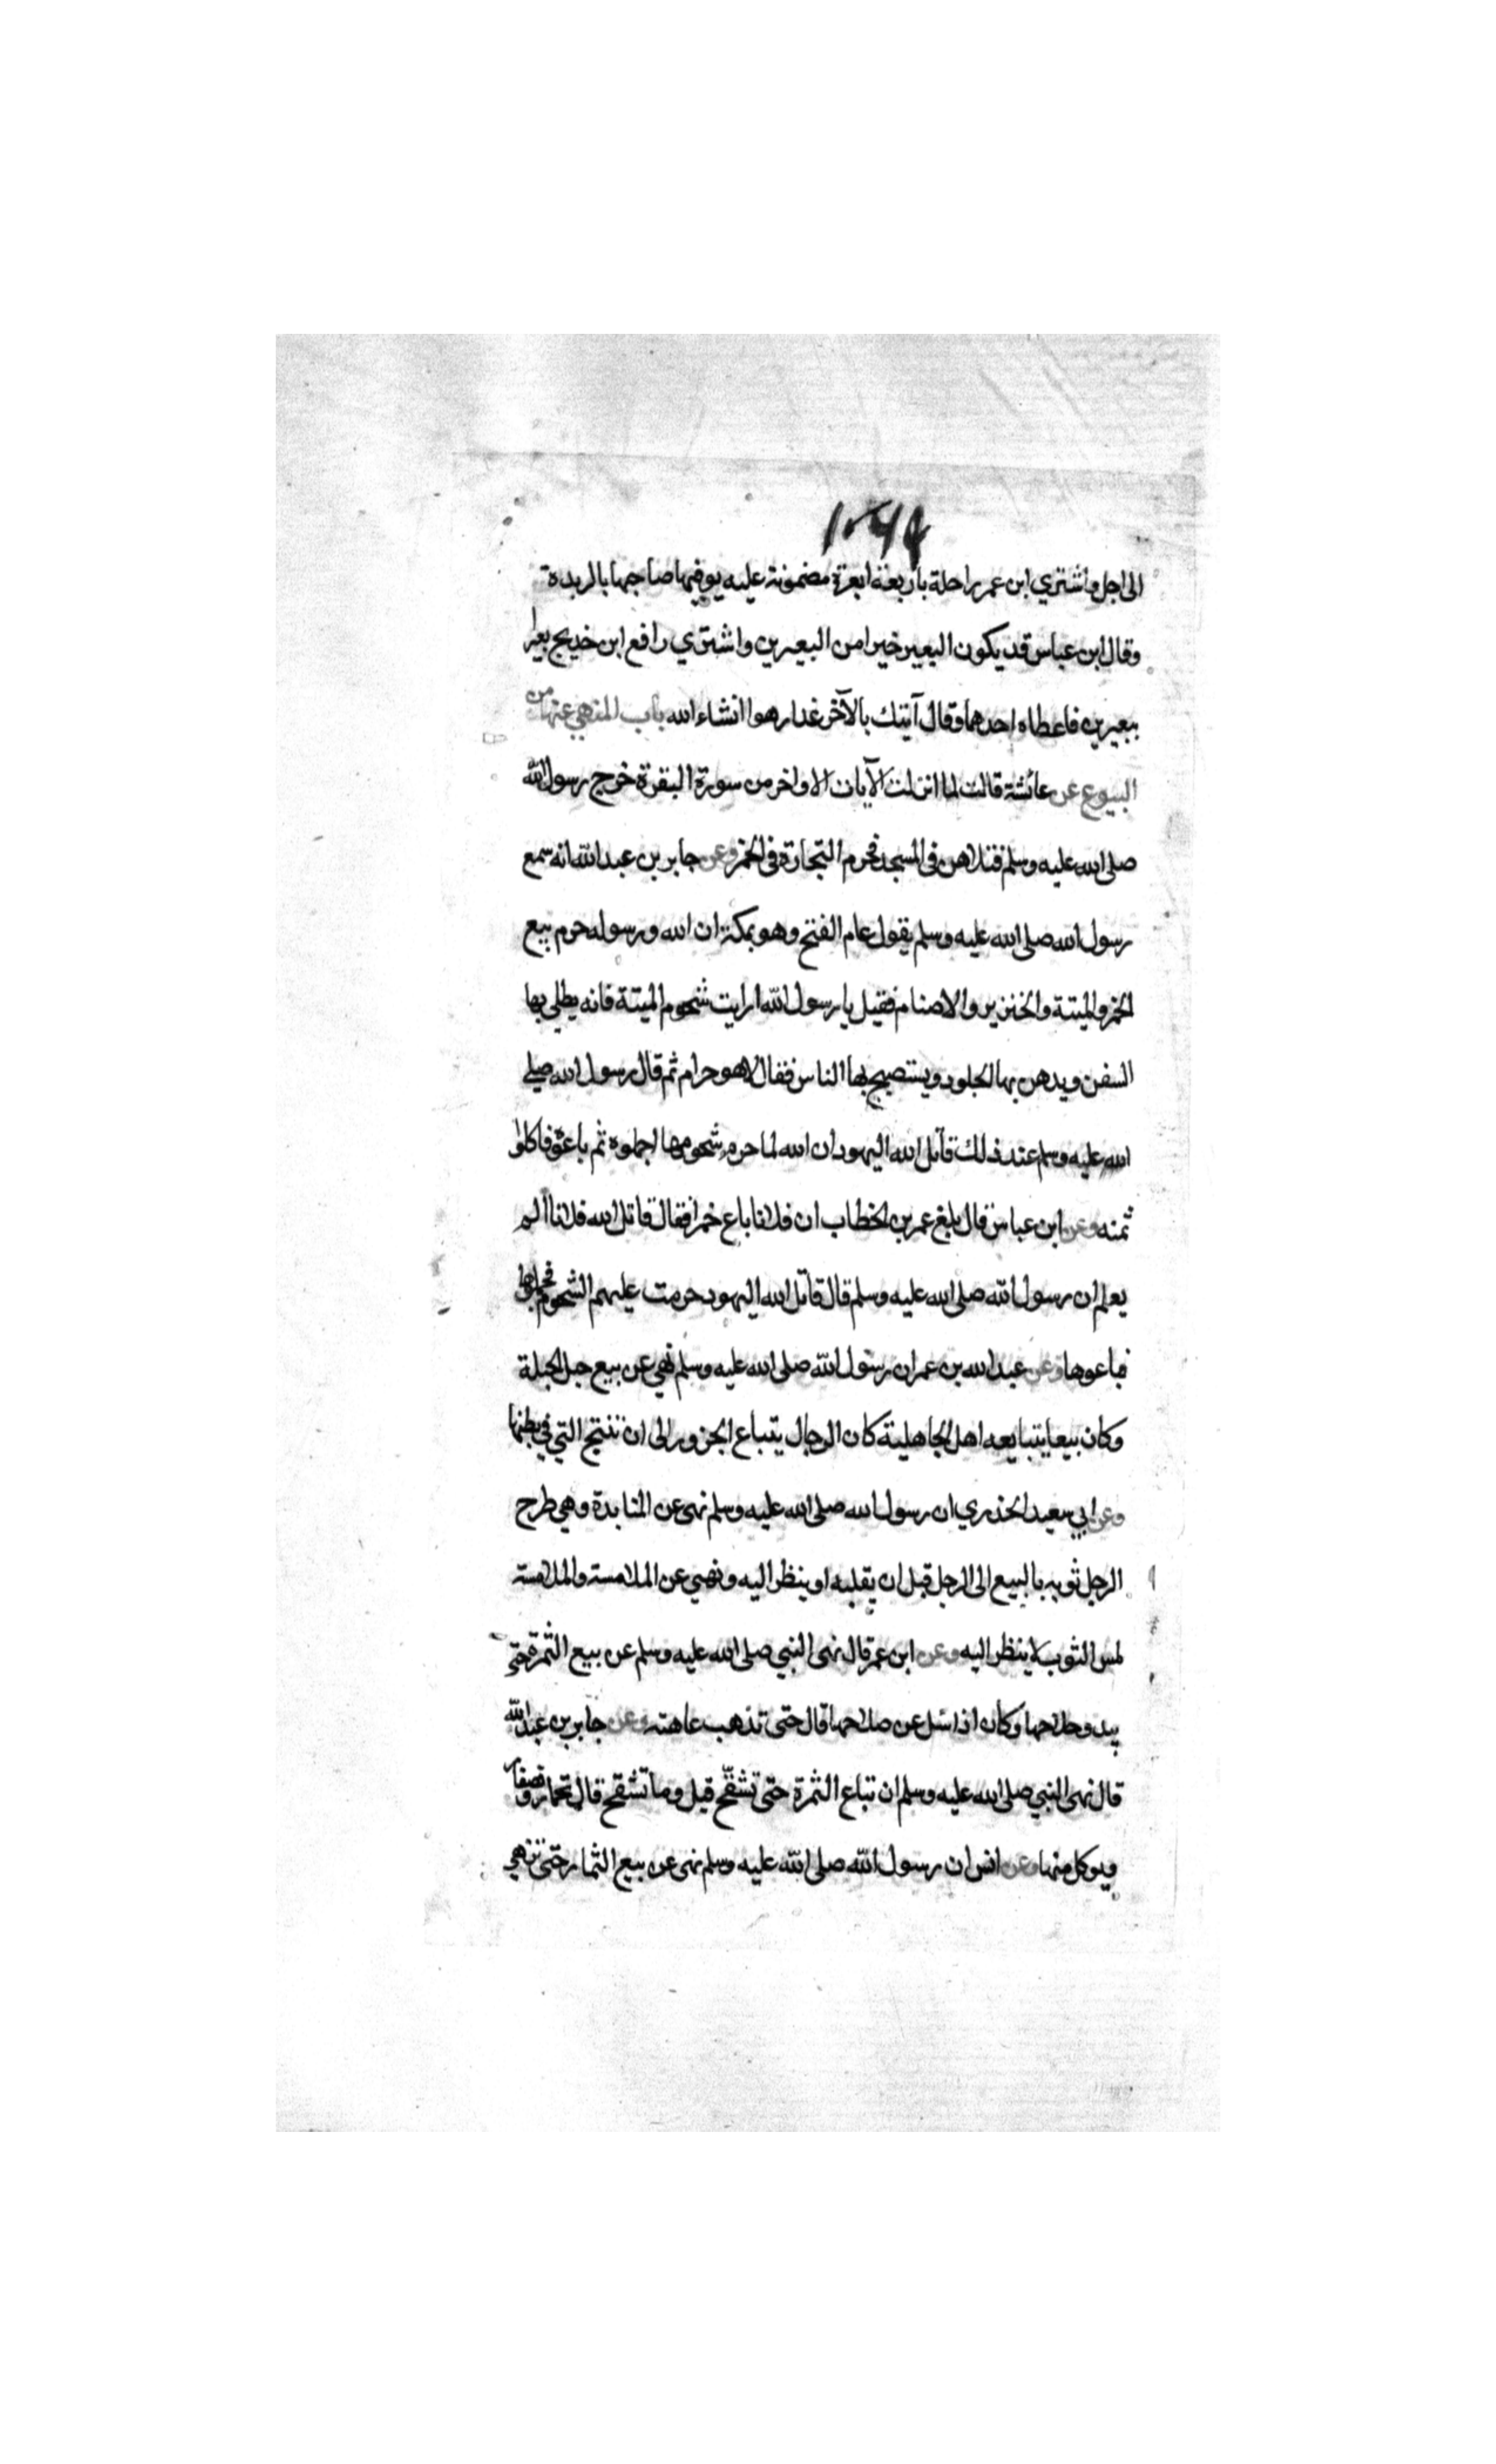 الى اجل واشتري ابن عمر راحلة باربعة ابعرة مضمونة عليه يوفيها صاحبها بالربدة
وقال ابن عباس قد يكون البعير خيرا من البعيرين واشتري رافع ابن خديج بعيرا
ببعيرين فاعطاه احدهما وقال آتيك بالآخر غدا رهوا انشاء الله باب المنهي عنها من
البيوع عن عائشة قالت لما انزلت الآيات الاواخر من سورة البقرة خرج رسول الله
صلى الله عليه وسلم فتلاهن في المسجد فحرم التجارة في الخمر وعن جابر بن عبد الله انه سمع
رسول الله صلى الله عليه وسلم يقول عام الفتح وهو بمكة ان الله ورسوله حرم بيع
الخمر والميتة والخنزير والاصنام فقيل يا رسول الله ارايت شحوم الميتة فانه يطلي بها
السفن ويدهن بها الجلود ويستصبح بها الناس فقال لا هو حرام ثم قال رسول الله صلي
الله عليه وسلم عند ذلك قاتل الله اليهود ان الله لما حرم شحومها اجملوه ثم باعوه فاكلوا
ثمنه وعن ابن عباس قال بلغ عمر بن الخطاب ان فلانا باع خمرا فقال قاتل الله فلانا الم
يعلم ان رسول الله صلى الله عليه وسلم قال قاتل الله اليهود حرمت عليهم الشحوم فجملوها
فباعوها وعن عبد الله بن عمر ان رسول الله صلى الله عليه وسلم نهي عن بيع حبل الحبلة
وكان بيعا يتبايعه اهل الجاهلية كان الرجال يتباع الجزور الى ان تنتج التي في بطنها
وعن ابي سعيد الخذري ان رسول الله صلى الله عليه وسلم نهى عن المنابدة وهي طرح
الرجل ثوبه بالبيع الى الرجل قبل ان يقلبه او ينظر اليه ونهي عن الملامسة والملامسة
لمس الثوب لا ينظر اليه وعن ابن عمر قال نهى النبي صلى الله عليه وسلم عن بيع الثمرة حتى
يبدو صلاحها وكان اذا سئل عن صلاحها قال حتى تذهب عاهته وعن جابر بن عبد الله
قال نهى النبي صلى الله عليه وسلم ان تباع الثمرة حتى تشقح قيل وما تشقح قال تحمار وتصفار
ويوكل منها وعن انس ان رسول الله صلى الله عليه وسلم نهى عن بيع الثمار حتى تزهي